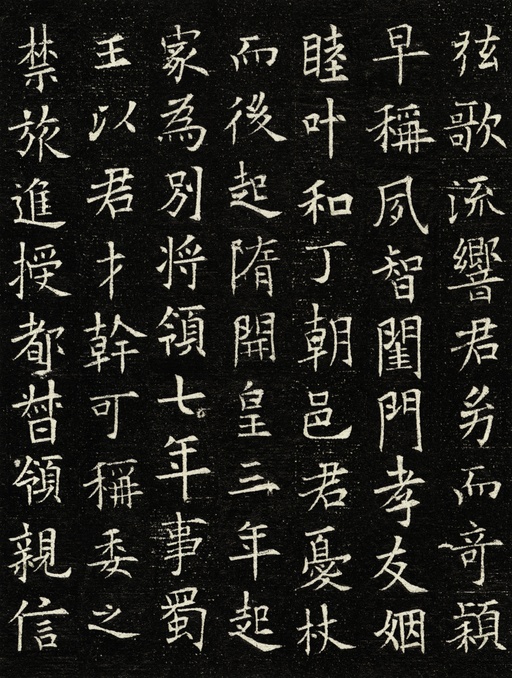 弦歌流響君幼而奇穎
早稱夙智閨門孝友姻
睦叶和丁朝邑君憂杖
而後起隋開皇三年起
家為別將領七年事蜀
王以君才幹可稱委之
禁旅進授都督領親信